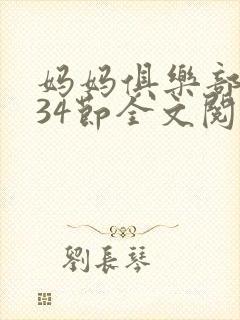 妈妈俱樂部
34節全文閱
劉長琴